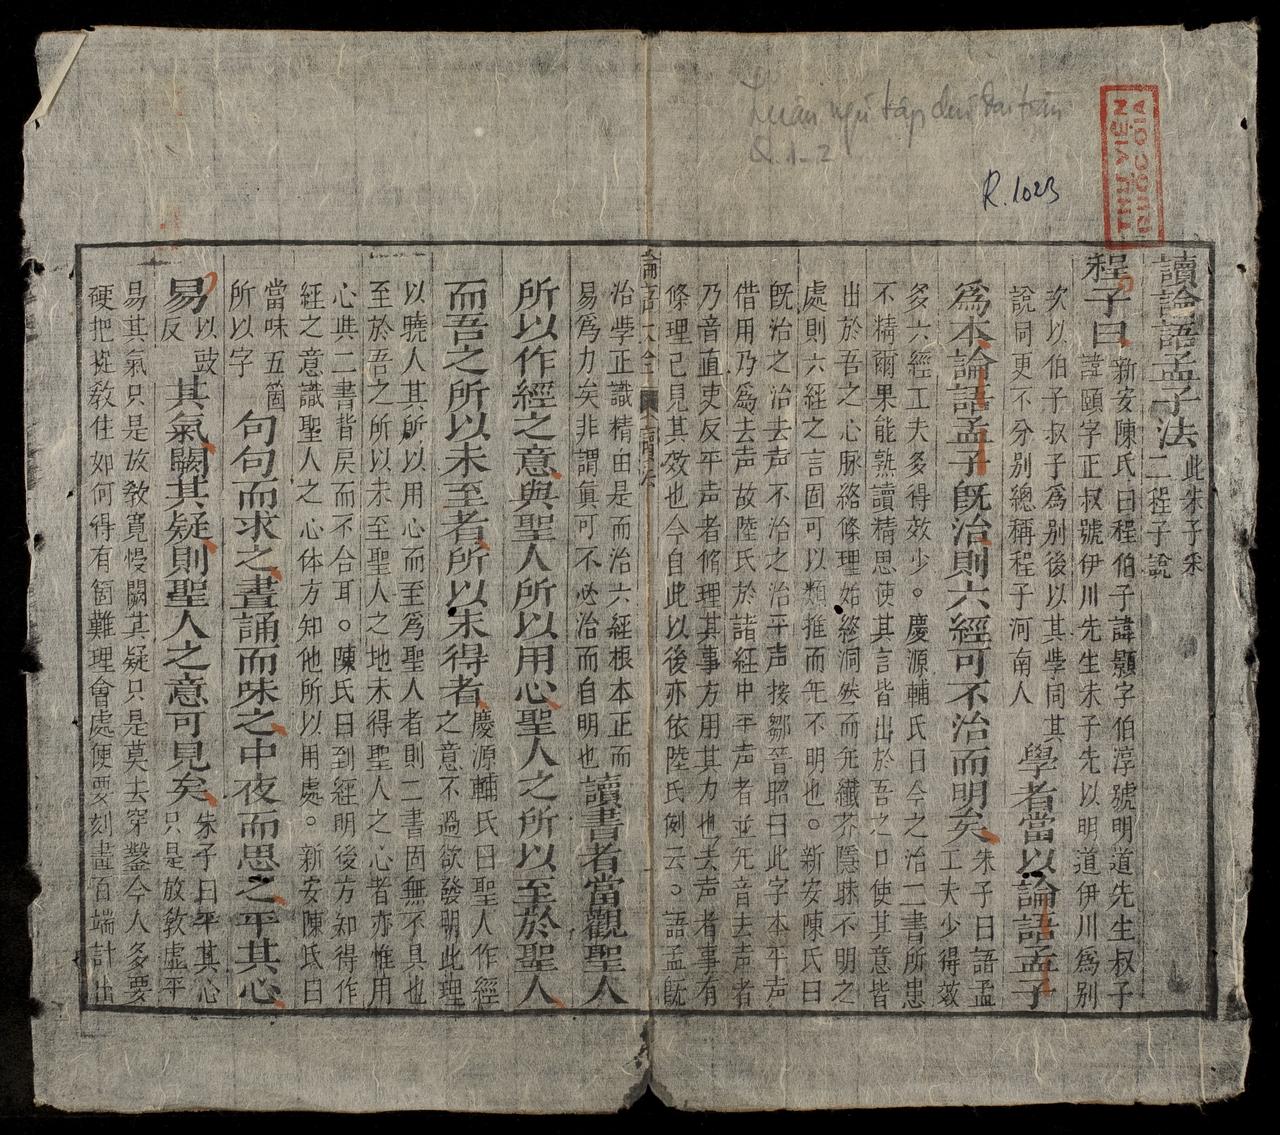 Luận ngữ tập chú đại toàn
Q. 1-2
R. 1023
THƯ VIỆN
QUỐC GIA
讀論語孟子法此朱子采
二程子說
程子曰新安陳氏曰程伯子諱顥字伯淳號明道先生叔子
諱頤字正叔號伊川先生朱子先以明道伊川爲別
次以伯子叔子爲別後以其學同其
說同更不分別總稱程子河南人
學者當以論語孟子
爲本論語孟子旣治則六經可不治而明矣朱子曰語孟
工夫少得效
多六經工夫多得效少。慶源輔氏曰今之治二書所患
不精爾果能熟讀精思使其言皆出於吾之口使其意皆
出於吾之心脉絡條理始終洞然而无纖芥隱昧不明之
處則六經之言固可以類推而无不明也。新安陳氏曰
旣治之治去声不治之治平声按鄒晉昭曰此字本平声
借用乃爲去声故陸氏於諸經中平声者並无音去声者
乃音直吏反平声者脩理其事方用其力也去声者事有
條理已見其效也今自此以後亦依陸氏例云。語孟旣
論語大全
讀法
一
治學正識精由是而治六經根本正而
易爲力矣非謂眞可不必治而自明也
讀書者當觀聖人
所以作經之意與聖人所以用心聖人之所以至於聖人
而吾之所以未至者所以未得者慶源輔氏曰聖人作經
之意不過欲發明此理
以曉人其所以用心而至爲聖人者則二書固無不具也
至於吾之所以未至聖人之地未得聖人之心者亦惟用
心與二書背戾而不合耳。陳氏曰到經明後方知得作
經之意識聖人之心体方知他所以用處。新安陳氏曰
當味五箇
所以字
句句而求之晝誦而味之中夜而思之平其心
易以豉
反
其氣闕其疑則聖人之意可見矣朱子曰平其心
只是放敎虛平
易其氣只是放敎寬慢闕其疑只是莫去穿鑿今人多要
硬把捉敎住如何得有箇難理會處便要刻畫百端計出